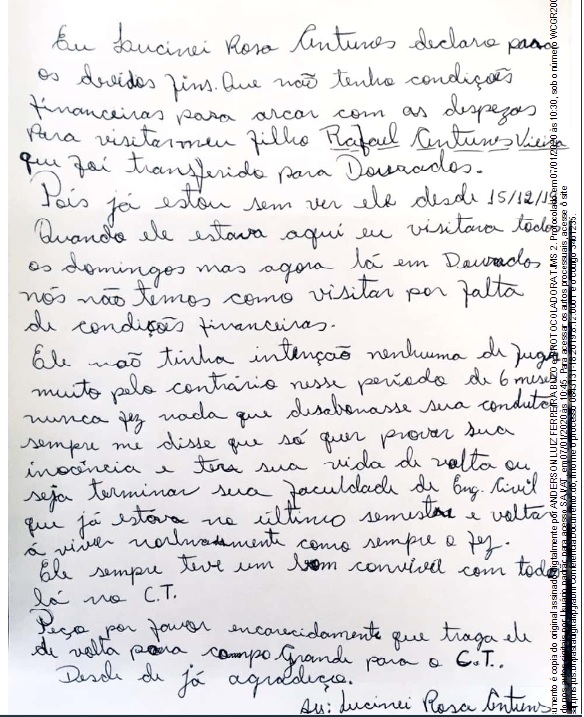 Eu Lucinei Rosa Antunes declaro para
os devidos fins. Que não tenho condições
financeiras para arcar com as despezas
Para visitar meu filho Rafael Antunes Vieira
que foi transferido para Dourados.
Pois já estou sem ver ele desde 15/12/19
Quando ele estava aqui eu visitava todos
os domingos mas agora lá em Dourados
nós não temos como visitar por falta
de condições financeiras.
Ele não tinha intenção nenhuma de fugir
muito pelo contrário nesse período de 6 meses
nunca fez nada que disabonasse sua conduta
sempre me disse que só quer provar sua
inocência e ter sua vida de volta ou
seja terminar sua faculdade de Eng. Civil
que já estava no último semestre e voltar
á viver normalmente como sempre o fez.
Ele sempre teve um bom convivel com todos
lá no C.T.
Peço por favor encarecidamente que traga ele
de volta para campo Grande para o C.T.
Desde de já agradeço.
Ass: Lucinei Rosa Antunes
umento é cópia do original assinado digitalmente por ANDERSON LUIZ FERREIRA BUZO e PROTOCOLADORA TJMS 2. Protocolado em 07/01/2020 às 10:30, sob o número WCGR200